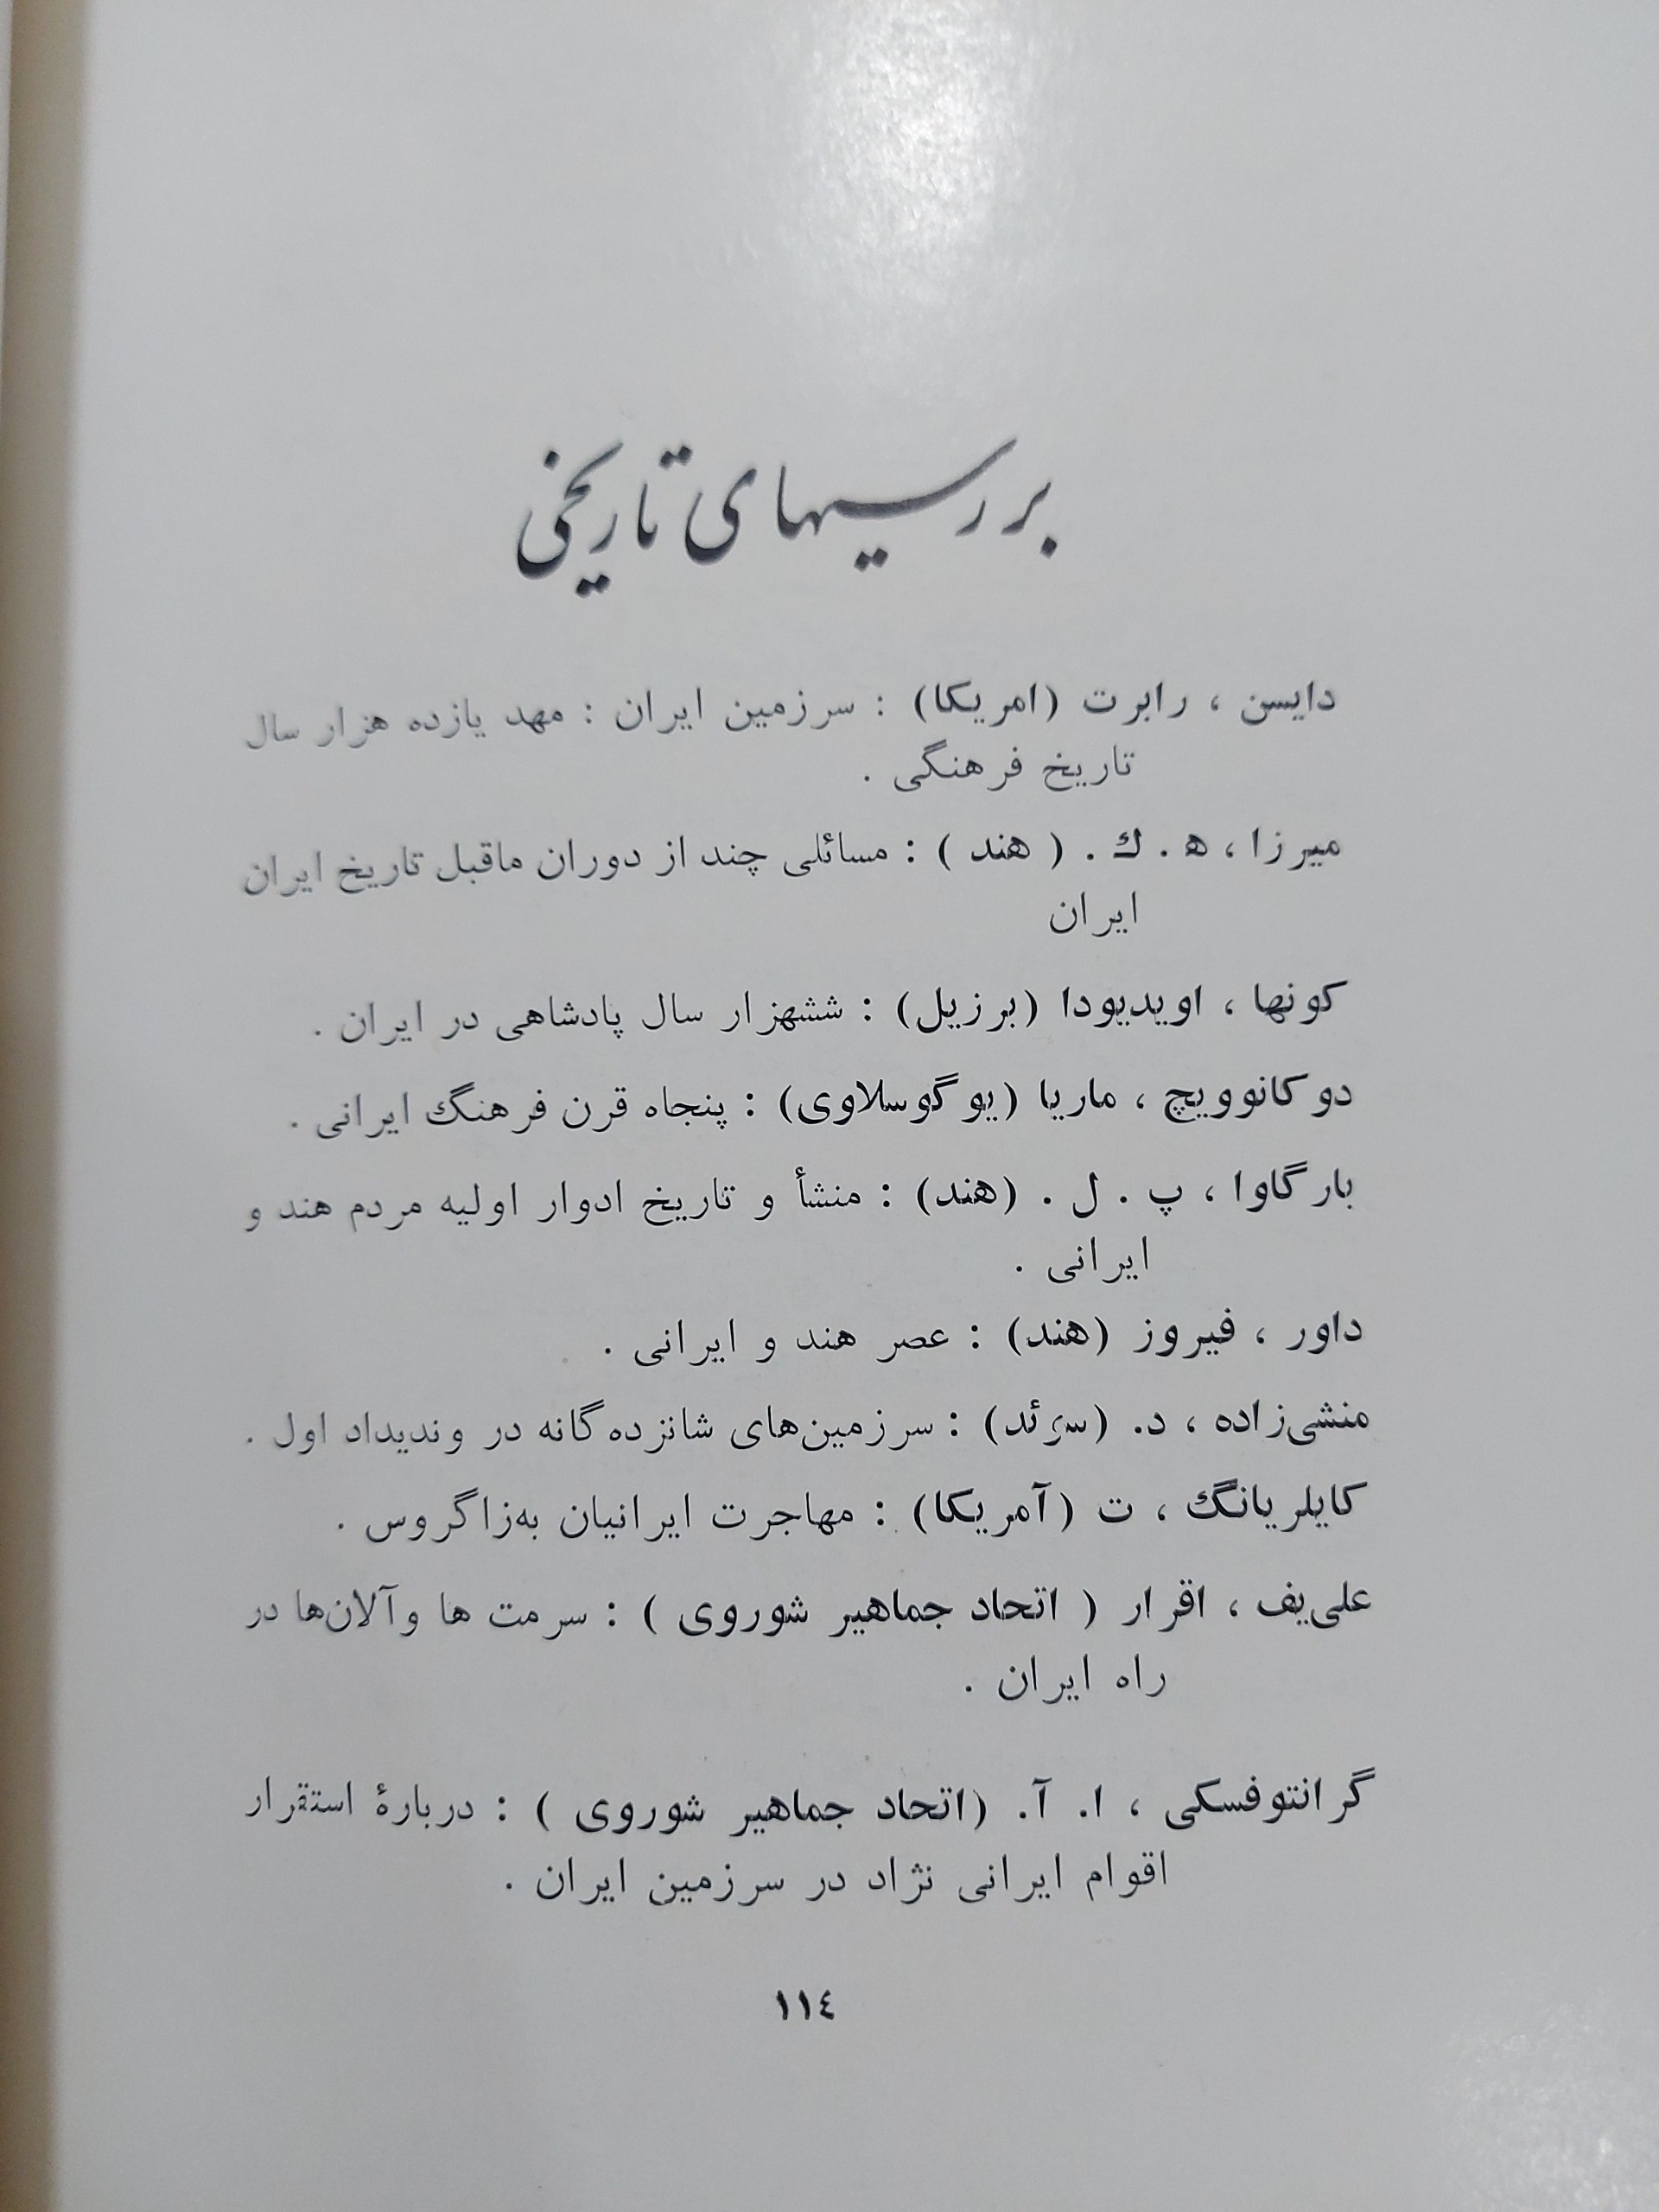 بررسیهای تاریخی
دایسن ، رابرت (امریکا) : سرزمین ایران : مهد یازده هزار سال
تاریخ فرهنگی .
میرزا ، ه . ك . ( هند ) : مسائلی چند از دوران ماقبل تاریخ ایران
ایران
کونها ، اویدیودا (برزیل) : ششهزار سال پادشاهی در ایران .
دوکانوویچ ، ماریا (یوگوسلاوی) : پنجاه قرن فرهنگ ایرانی .
بارگاوا ، پ . ل . (هند) : منشأ و تاریخ ادوار اولیه مردم هند و
ایرانی .
داور ، فیروز (هند) : عصر هند و ایرانی .
منشی‌زاده ، د. (سوئد) : سرزمین‌های شانزده‌گانه در وندیداد اول .
کایلریانگ ، ت (آمریکا) : مهاجرت ایرانیان به‌زاگروس .
علی‌یف ، اقرار ( اتحاد جماهیر شوروی ) : سرمت ها وآلان‌ها در
راه ایران .
گرانتوفسکی ، ا. آ. (اتحاد جماهیر شوروی ) : دربارهٔ استقرار
اقوام ایرانی نژاد در سرزمین ایران .
١١٤